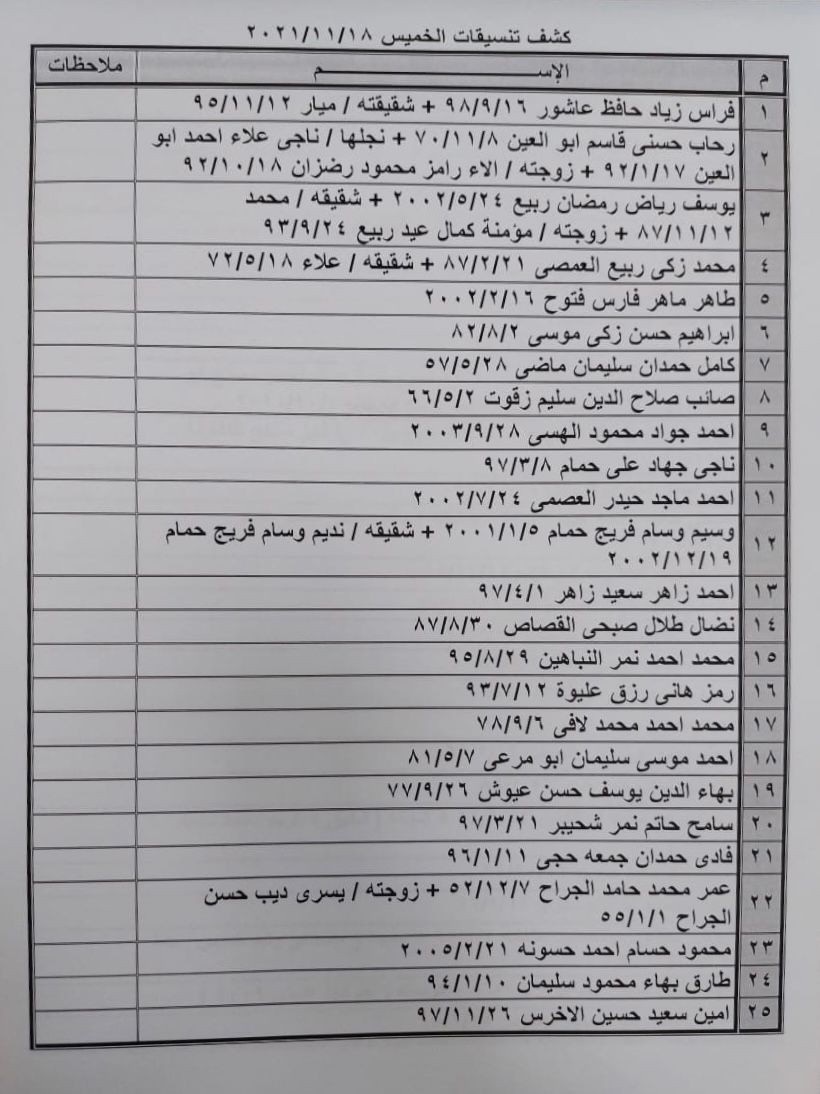 كشف تنسيقات الخميس ٢٠٢١/١١/١٨
م الإســـــــــــم ملاحظات
١ فراس زياد حافظ عاشور ٩٨/٩/١٦ + شقيقته / ميار ٩٥/١١/١٢
٢ رحاب حسنى قاسم ابو العين ٧٠/١١/٨ + نجلها / ناجى علاء احمد ابو
العين ٩٢/١/١٧ + زوجته / الاء رامز محمود رضزان ٩٢/١٠/١٨
٣ يوسف رياض رمضان ربيع ٢٠٠٢/٥/٢٤ + شقيقه / محمد
٨٧/١١/١٢ + زوجته / مؤمنة كمال عيد ربيع ٩٣/٩/٢٤
٤ محمد زكى ربيع العمصى ٨٧/٢/٢١ + شقيقه / علاء ٧٢/٥/١٨
٥ طاهر ماهر فارس فتوح ٢٠٠٢/٢/١٦
٦ ابراهيم حسن زكى موسى ٨٢/٨/٢
٧ كامل حمدان سليمان ماضى ٥٧/٥/٢٨
٨ صائب صلاح الدين سليم زقوت ٦٦/٥/٢
٩ احمد جواد محمود الهسى ٢٠٠٣/٩/٢٨
١٠ ناجى جهاد على حمام ٩٧/٣/٨
١١ احمد ماجد حيدر العصمى ٢٠٠٢/٧/٢٤
١٢ وسيم وسام فريج حمام ٢٠٠١/١/٥ + شقيقه / نديم وسام فريج حمام
٢٠٠٢/١٢/١٩
١٣ احمد زاهر سعيد زاهر ٩٧/٤/١
١٤ نضال طلال صبحى القصاص ٨٧/٨/٣٠
١٥ محمد احمد نمر النباهين ٩٥/٨/٢٩
١٦ رمز هانى رزق عليوة ٩٣/٧/١٢
١٧ محمد احمد محمد لافى ٧٨/٩/٦
١٨ احمد موسى سليمان ابو مرعى ٨١/٥/٧
١٩ بهاء الدين يوسف حسن عيوش ٧٧/٩/٢٦
٢٠ سامح حاتم نمر شحيبر ٩٧/٣/٢١
٢١ فادى حمدان جمعه حجى ٩٦/١/١١
٢٢ عمر محمد حامد الجراح ٥٢/١٢/٧ + زوجته / يسرى ديب حسن
الجراح ٥٥/١/١
٢٣ محمود حسام احمد حسونه ٢٠٠٥/٢/٢١
٢٤ طارق بهاء محمود سليمان ٩٤/١/١٠
٢٥ امين سعيد حسين الاخرس ٩٧/١١/٢٦